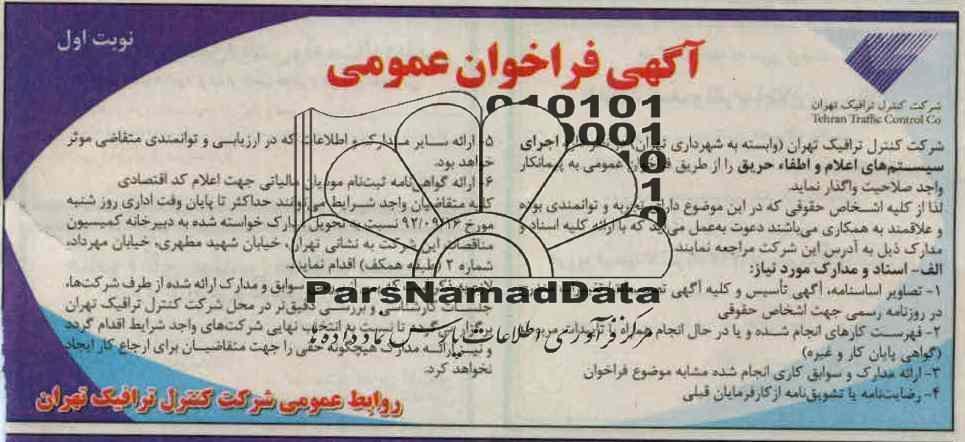 نوبت اول
آگهی فراخوان عمومی
شرکت کنترل ترافیک تهران
Tehran Traffic Control Co
شرکت کنترل ترافیک تهران (وابسته به شهرداری تهران) اجرای
سیستم‌های اعلام و اطفاء حریق را از طریق عمومی به پیمانکار
واجد صلاحیت واگذار نماید.
لذا از کلیه اشخاص حقوقی که در این موضوع دارای تجربه و توانمندی بوده
و علاقمند به همکاری می‌باشند دعوت به‌عمل می‌آید که با ارائه کلیه اسناد و
مدارک ذیل به آدرس این شرکت مراجعه نمایند.
الف- اسناد و مدارک مورد نیاز:
۱- تصاویر اساسنامه، آگهی تأسیس و کلیه آگهی
در روزنامه رسمی جهت اشخاص حقوقی
۲- فهرست کارهای انجام شده و یا در حال انجام همراه با تأییدات
(گواهی پایان کار و غیره)
۳- ارائه مدارک و سوابق کاری انجام شده مشابه موضوع فراخوان
۴- رضایت‌نامه یا تشویق‌نامه ازکارفرمایان قبلی
۵- ارائه سایر مدارک و اطلاعات که در ارزیابی و توانمندی متقاضی موثر
خواهد بود.
۶- ارائه گواهی‌نامه ثبت‌نام مودیان مالیاتی جهت اعلام کد اقتصادی
کلیه متقاضیان واجد شرایط می‌توانند حداکثر تا پایان وقت اداری روز شنبه
مورخ ۹۲/۰۹/۱۶ نسبت به تحویل مدارک خواسته شده به دبیرخانه کمیسیون
مناقصات این شرکت به نشانی تهران، خیابان شهید مطهری، خیابان مهرداد،
شماره ۲ (طبقه همکف) اقدام نمایند.
سوابق و مدارک ارائه شده از طرف شرکت‌ها،
جلسات کارشناسی و بررسی دقیق‌تر در محل شرکت کنترل ترافیک تهران
تا نسبت به انتخاب نهایی شرکت‌های واجد شرایط اقدام گردد
و نیز ارائه مدارک هیچگونه حقی را جهت متقاضیان برای ارجاع کار ایجاد
نخواهد کرد.
روابط عمومی شرکت کنترل ترافیک تهران
010101
0001
10
1
0
ParsNamadData
مرکز فرآوری اطلاعات پارس نماد داده ها